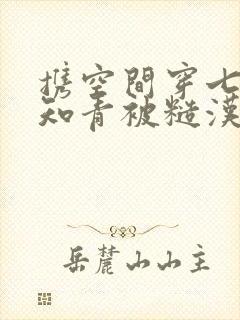 携空間穿七
知青被糙漢
岳麓山山主